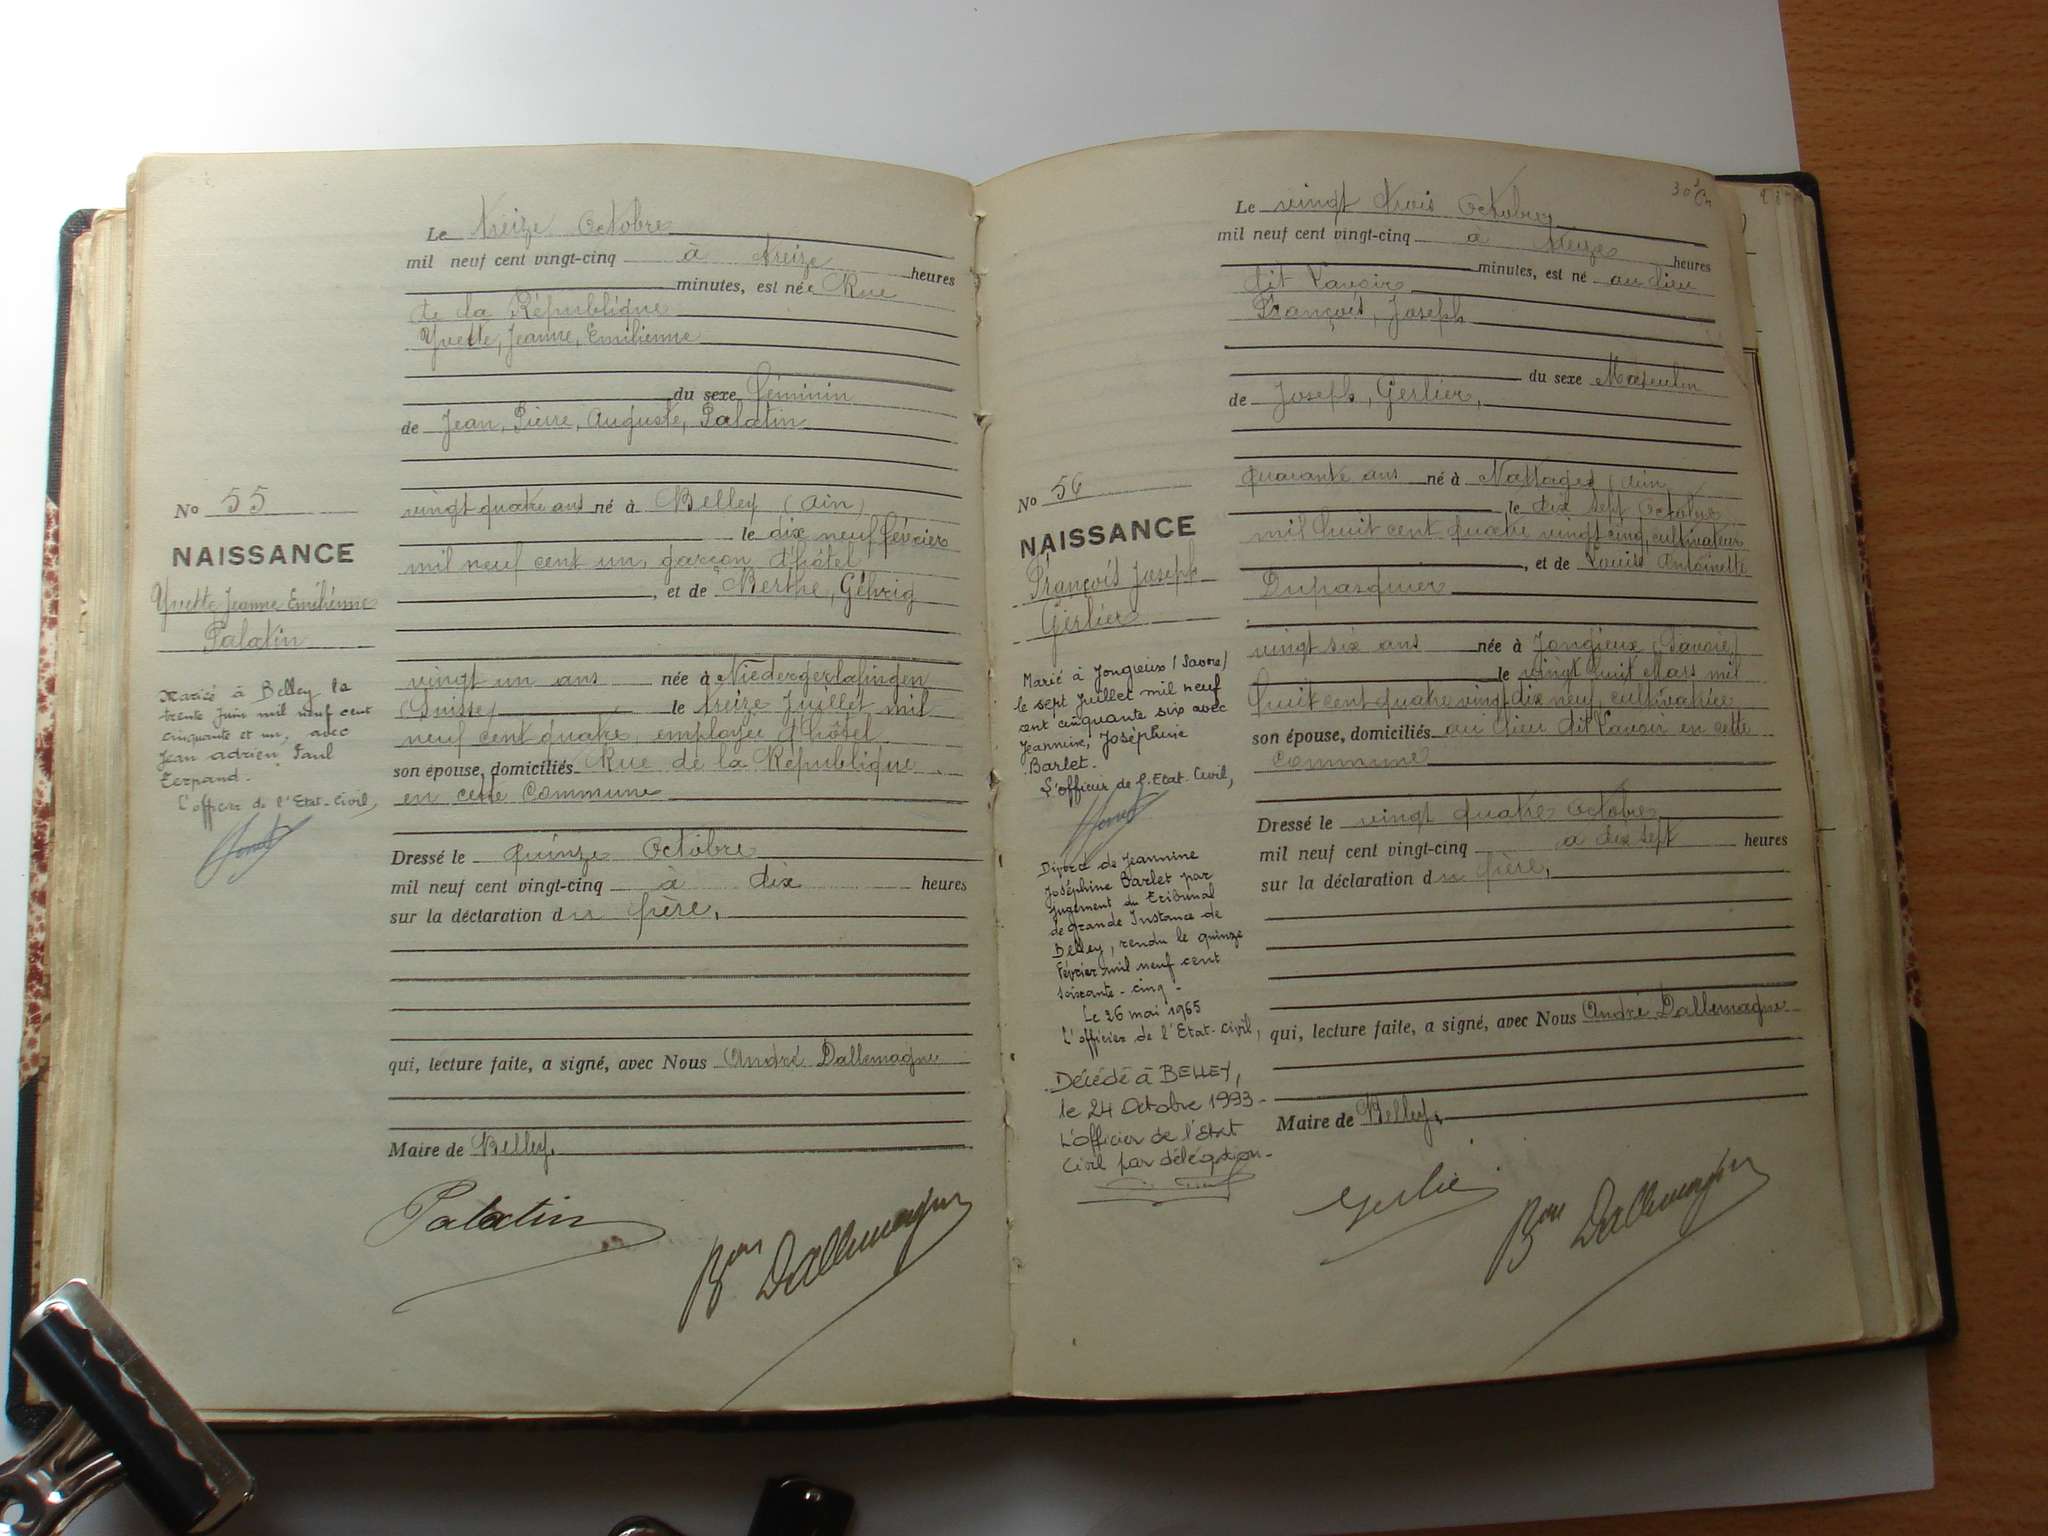 Le treize Octobre
mil neuf cent vingt-cinq à treize heures
minutes, est née Rue
de la République
Yvette, Jeanne, Emilienne
du sexe féminin
de Jean, Pierre, Auguste, Palatin
No 55
vingt quatre ans né à Belley (Ain)
le dix neuf février
NAISSANCE
mil neuf cent un, garçon d'hôtel
Yvette Jeanne Emilienne
, et de Berthe, Géhrig
Palatin
vingt un ans née à Niedergerlafingen
(Suisse) le treize Juillet mil
neuf cent quatre, employée d'hôtel
son épouse, domiciliés Rue de la République
en cette Commune
Mariée à Belley le
trente Juin mil neuf cent
cinquante et un, avec
Jean Adrien Paul
Terpand.
L'officier de l'Etat-Civil,
Dressé le quinze Octobre
mil neuf cent vingt-cinq à dix heures
sur la déclaration du père,
qui, lecture faite, a signé, avec Nous André Dallemagne
Maire de Belley.
Palatin
Bon Dallemagne
Le vingt trois Octobre
mil neuf cent vingt-cinq à treize heures
minutes, est né au lieu
dit Lavoir
François, Joseph
du sexe Masculin
de Joseph, Gerlier,
No 56
quarante ans né à Nattages (Ain
le dix sept Octobre
NAISSANCE
mil huit cent quatre vingt cinq, cultivateur
François Joseph
, et de Louise Antoinette
Gerlier
Dupasquier
vingt six ans née à Jongieux (Savoie)
le vingt huit Mars mil
huit cent quatre vingt dix neuf, cultivatrice
son épouse, domiciliés au lieu dit Lavoir en cette
commune
Marié à Jongieux (Savoie)
le sept Juillet mil neuf
cent cinquante six avec
Jeannine, Joséphine
Barlet.
L'officier de l'Etat-Civil,
Dressé le vingt quatre Octobre
mil neuf cent vingt-cinq à dix sept heures
sur la déclaration du père,
Divorcé de Jeannine
Joséphine Barlet par
jugement du Tribunal
de Grande Instance de
Belley, rendu le quinze
Février mil neuf cent
soixante-cinq -
Le 26 mai 1965
L'officier de l'Etat-Civil,
qui, lecture faite, a signé, avec Nous André Dallemagne
Décédé à BELLEY,
le 24 Octobre 1993-
L'Officier de l'Etat
Civil par délégation-
Maire de Belley.
Gerlier
Bon Dallemagne